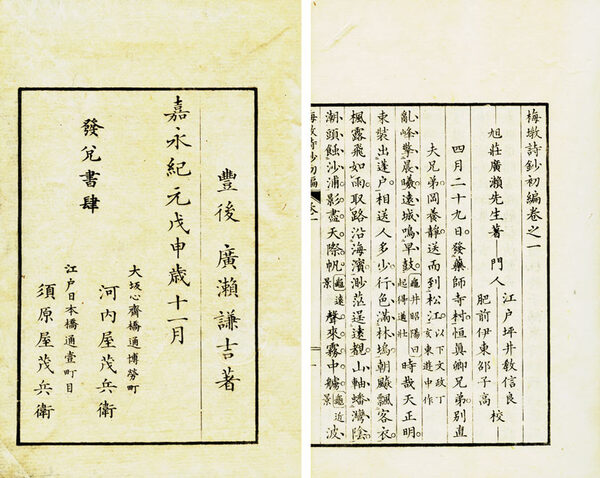 梅墩詩鈔初編卷之一
旭莊廣瀬先生著 門人
江戸坪井教信良
肥前伊東邵子高 校
四月二十九日發藥師寺村恒真卿兄弟別直
大兄弟岡養靜送而到松江
以下文政丁
亥東遊中作
亂峰擎晨曦遠城鳴早鼓
龜井昭陽曰
起得遒壯
時哉天正明
束裝出蓬戸相送人多少行色滿林塢朝颷飄客衣
楓露飛如雨取路沿海濱渺茫逞遠覩山軸蟠灣陰
潮頭蝕沙浦影盡天際帆
龜遠
景
聲來霧中艣
龜近
景
波
梅墩詩鈔初編
卷一
一
豐後 廣瀬謙吉著
嘉永紀元戊申歳十一月
發兌書肆
大坂心齋橋通博勞町
河内屋茂兵衛
江戸日本橋通壹町目
須原屋茂兵衛